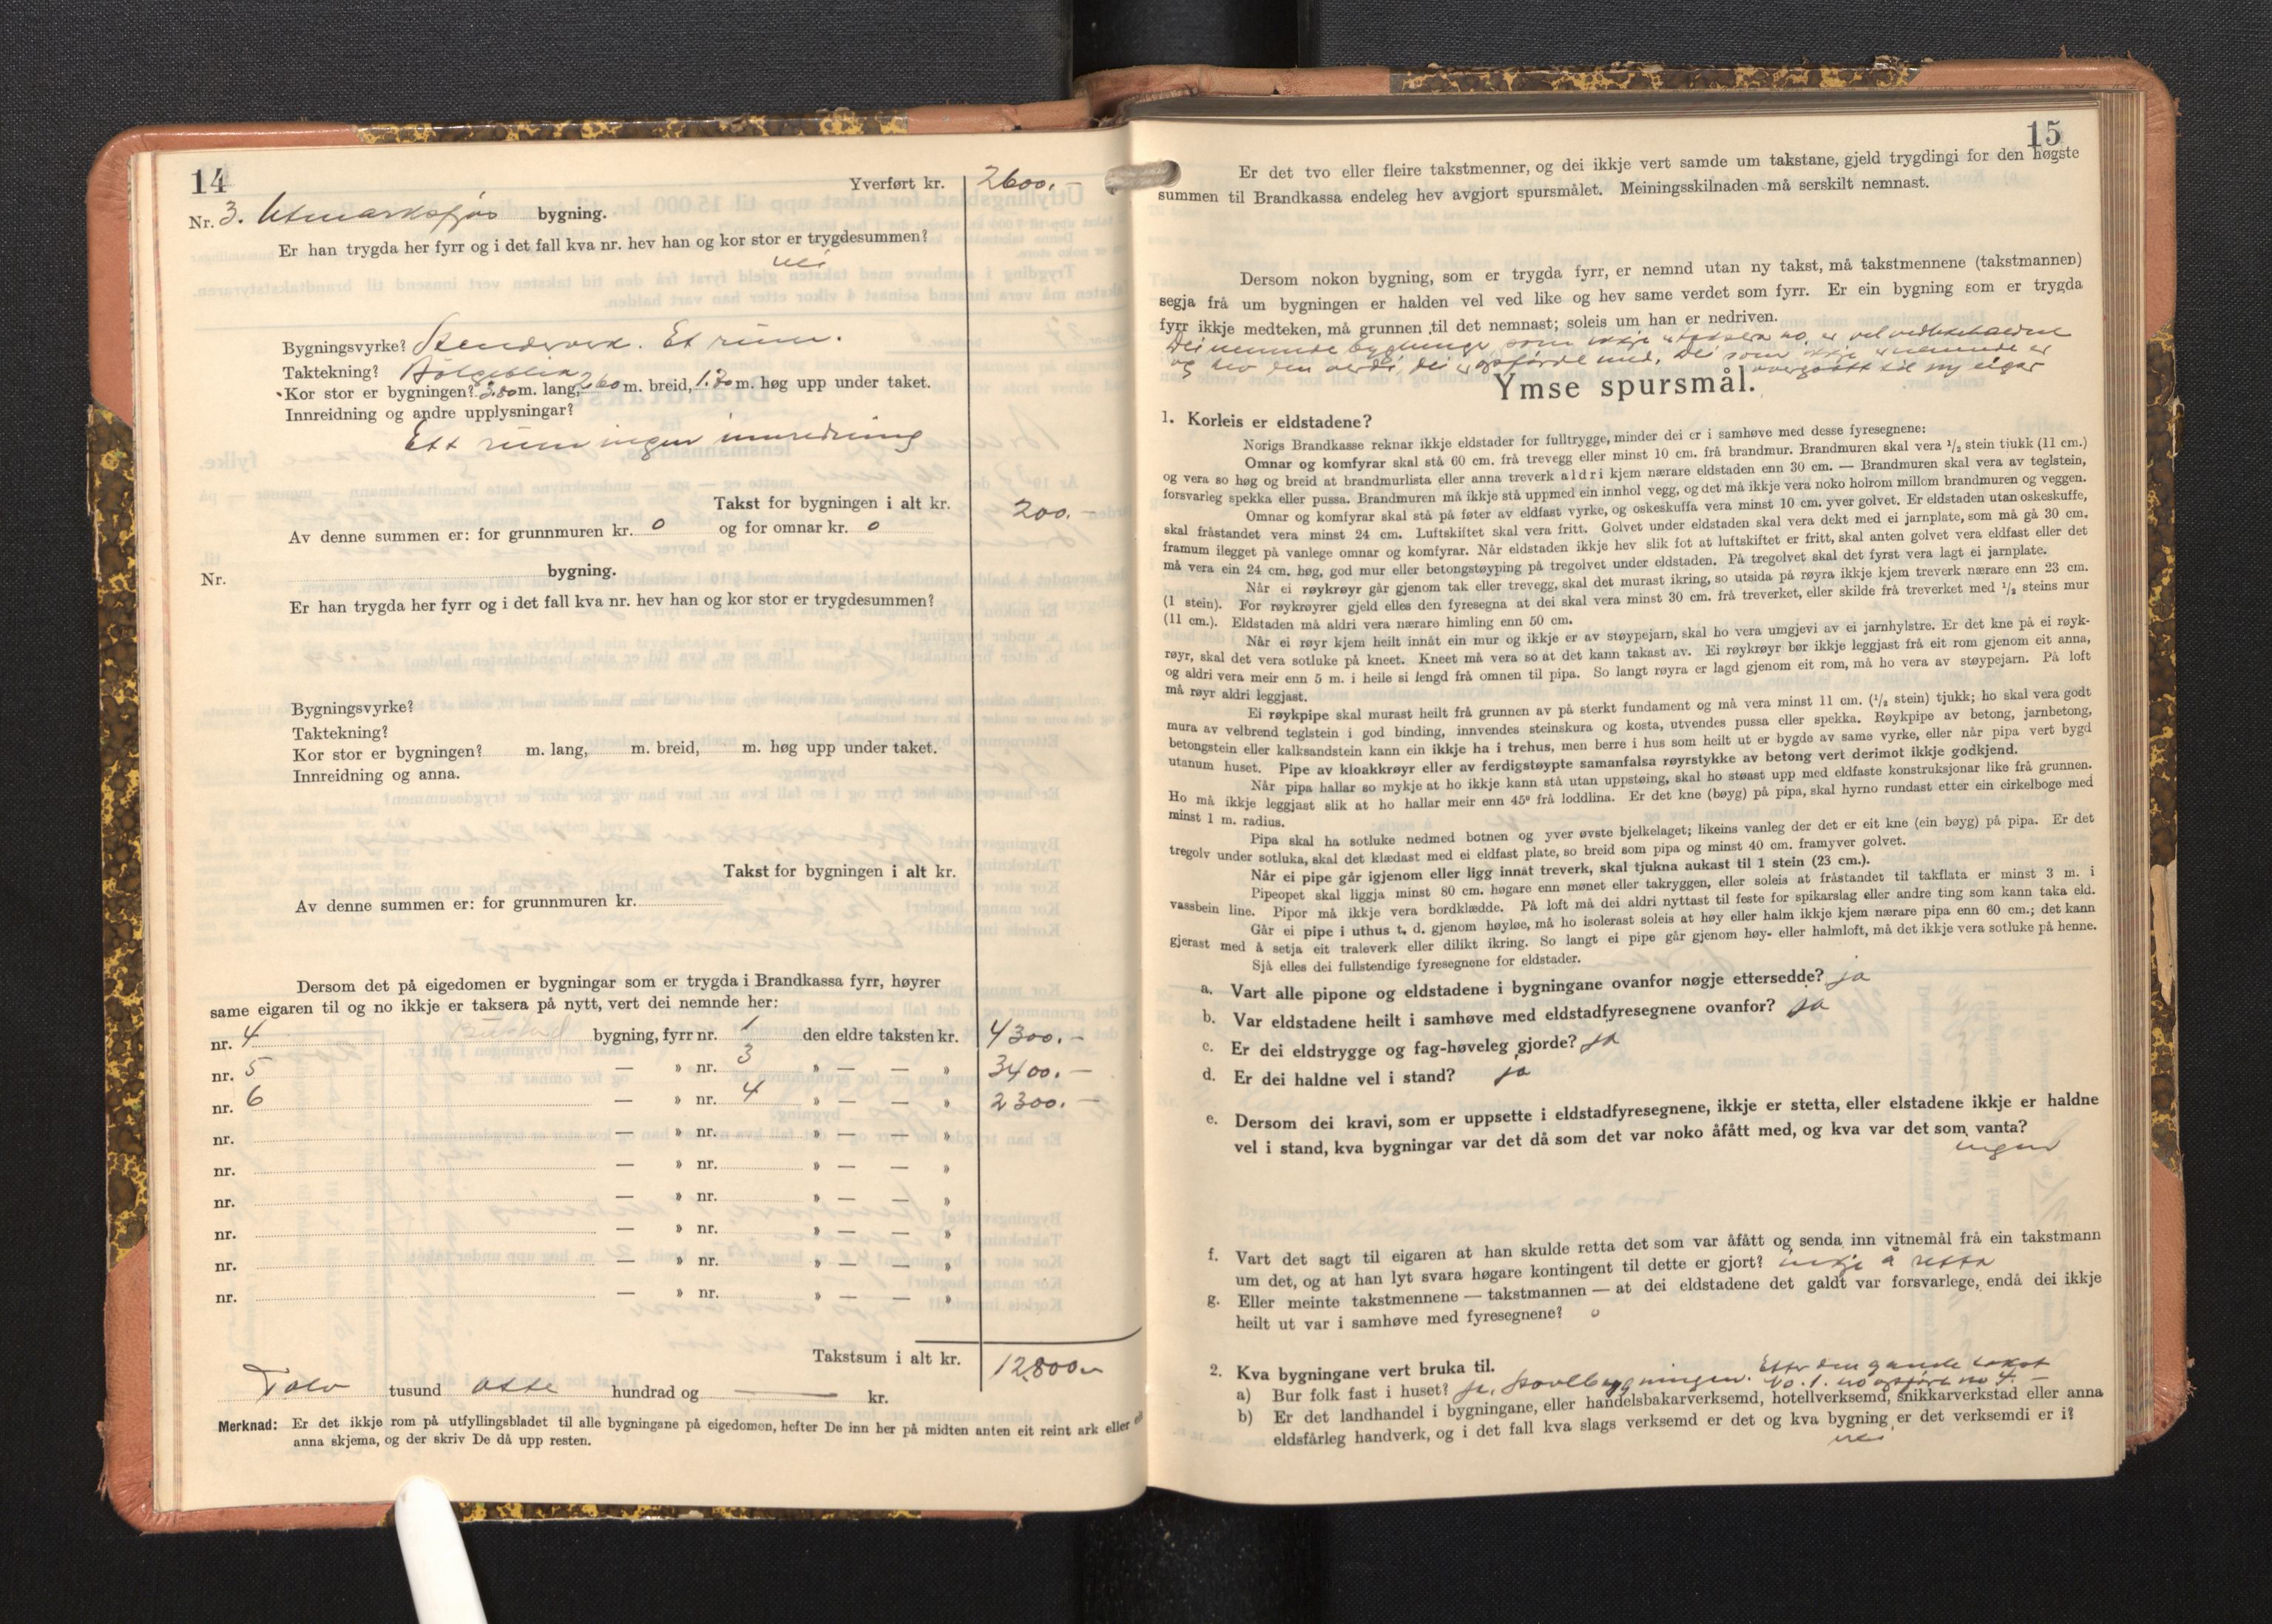 14
Yverført kr. 2600.-
Nr. 3. Utmarksfjøs bygning.
Er han trygda her fyrr og i det fall kva nr. hev han og kor stor er trygdesummen?
nei
Bygningsvyrke? Stenderverk. Et rum.
Taktekning? Bølgeblikk
Kor stor er bygningen? 3.80 m. lang, 2.60 m. breid, 1.70 m. høg upp under taket.
Innreidning og andre upplysningar?
Ett rum ingen innredning
Takst for bygningen i alt kr. 200.-
Av denne summen er: for grunnmuren kr. 0 og for omnar kr. 0
Nr. bygning.
Er han trygda her fyrr og i det fall kva nr. hev han og kor stor er trygdesummen?
Bygningsvyrke?
Taktekning?
Kor stor er bygningen? m. lang, m. breid, m. høg upp under taket.
Innreidning og anna.
Takst for bygningen i alt kr.
Av denne summen er: for grunnmuren kr.
Dersom det på eigedomen er bygningar som er trygda i Brandkassa fyrr, høyrer
same eigaren til og no ikkje er taksera på nytt, vert dei nemnde her:
nr. 4 bygning, fyrr nr. 1 den eldre taksten kr. 4300.-
nr. 5 — » nr. 3 » — — » 3400.-
nr. 6 — » nr. 4 » — — » 2300.-
nr. — » nr. » — — »
nr. — » nr. » — — »
nr. — » nr. » — — »
nr. — » nr. » — — »
nr. — » nr. » — — »
nr. — » nr. » — — »
Takstsum i alt kr. 12800.-
Tolv tusund otte hundrad og — kr.
Merknad: Er det ikkje rom på utfyllingsbladet til alle bygningane på eigedomen, hefter De inn her på midten anten eit reint ark eller eit
anna skjema, og der skriv De då upp resten.
15
Er det tvo eller fleire takstmenner, og dei ikkje vert samde um takstane, gjeld trygdingi for den høgste
summen til Brandkassa endeleg hev avgjort spursmålet. Meiningsskilnaden må serskilt nemnast.
Dersom nokon bygning, som er trygda fyrr, er nemnd utan ny takst, må takstmennene (takstmannen)
segja frå um bygningen er halden vel ved like og hev same verdet som fyrr. Er ein bygning som er trygda
fyrr ikkje medteken, må grunnen til det nemnast; soleis um han er nedriven.
Dei nemnde bygninge som ikkje er taksera no, er vel vedlikehaldne
og hev den verdi, dei er oppførde med. Dei som ikkje er nemnde er
overgått til ny eigar
Ymse spursmål.
1. Korleis er eldstadene?
Norigs Brandkasse reknar ikkje eldstader for fulltrygge, minder dei er i samhøve med desse fyresegnene:
Omnar og komfyrar skal stå 60 cm. frå trevegg eller minst 10 cm. frå brandmur. Brandmuren skal vera ½ stein tjukk (11 cm.)
og vera so høg og breid at brandmurlista eller anna treverk aldri kjem nærare eldstaden enn 30 cm. — Brandmuren skal vera av teglstein,
forsvarleg spekka eller pussa. Brandmuren må ikkje stå uppmed ein innhol vegg, og det må ikkje vera noko holrom millom brandmuren og veggen.
Omnar og komfyrar skal stå på føter av eldfast vyrke, og oskeskuffa vera minst 10 cm. yver golvet. Er eldstaden utan oskeskuffe,
skal fråstandet vera minst 24 cm. Luftskiftet skal vera fritt. Golvet under eldstaden skal vera dekt med ei jarnplate, som må gå 30 cm.
framum ilegget på vanlege omnar og komfyrar. Når eldstaden ikkje hev slik fot at luftskiftet er fritt, skal anten golvet vera eldfast eller det
må vera ein 24 cm. høg, god mur eller betongstøyping på tregolvet under eldstaden. På tregolvet skal det fyrst vera lagt ei jarnplate.
Når ei røykrøyr går gjenom tak eller trevegg, skal det murast ikring, so utsida på røyra ikkje kjem treverk nærare enn 23 cm.
(1 stein). For røykrøyrer gjeld elles den fyresegna at dei skal vera minst 30 cm. frå treverket, eller skilde frå treverket med ½ steins mur
(11 cm.). Eldstaden må aldri vera nærare himling enn 50 cm.
Når ei røyr kjem heilt innåt ein mur og ikkje er av støypejarn, skal ho vera umgjevi av ei jarnhylstre. Er det kne på ei røyk-
røyr, skal det vera sotluke på kneet. Kneet må vera so at det kann takast av. Ei røykrøyr bør ikkje leggjast frå eit rom gjenom eit anna,
og aldri vera meir enn 5 m. i heile si lengd frå omnen til pipa. So langt røyra er lagd gjenom eit rom, må ho vera av støypejarn. På loft
må røyr aldri leggjast.
Ei røykpipe skal murast heilt frå grunnen av på sterkt fundament og må vera minst 11 cm. (½ stein) tjukk; ho skal vera godt
mura av velbrend teglstein i god binding, innvendes steinskura og kosta, utvendes pussa eller spekka. Røykpipe av betong, jarnbetong,
betongstein eller kalksandstein kann ein ikkje ha i trehus, men berre i hus som heilt ut er bygde av same vyrke, eller når pipa vert bygd
utanum huset. Pipe av kloakkrøyr eller av ferdigstøypte samanfalsa røyrstykke av betong vert derimot ikkje godkjend.
Når pipa hallar so mykje at ho ikkje kann stå utan uppstøing, skal ho støast upp med eldfaste konstruksjonar like frå grunnen.
Ho må ikkje leggjast slik at ho hallar meir enn 45° frå loddlina. Er det kne (bøyg) på pipa, skal hyrno rundast etter ein cirkelboge med
minst 1 m. radius.
Pipa skal ha sotluke nedmed botnen og yver øvste bjelkelaget; likeins vanleg der det er eit kne (ein bøyg) på pipa. Er det
tregolv under sotluka, skal det klædast med ei eldfast plate, so breid som pipa og minst 40 cm. framyver golvet.
Når ei pipe går igjenom eller ligg innåt treverk, skal tjukna aukast til 1 stein (23 cm.).
Pipeopet skal liggja minst 80 cm. høgare enn mønet eller takryggen, eller soleis at fråstandet til takflata er minst 3 m. i
vassbein line. Pipor må ikkje vera bordklædde. På loft må dei aldri nyttast til feste for spikarslag eller andre ting som kann taka eld.
Går ei pipe i uthus t. d. gjenom høyløe, må ho isolerast soleis at høy eller halm ikkje kjem nærare pipa enn 60 cm.; det kann
gjerast med å setja eit traleverk eller dilikt ikring. So langt ei pipe går gjenom høy- eller halmloft, må det ikkje vera sotluke på henne.
Sjå elles dei fullstendige fyresegnene for eldstader.
a. Vart alle pipone og eldstadene i bygningane ovanfor nøgje ettersedde? ja
b. Var eldstadene heilt i samhøve med eldstadfyresegnene ovanfor? ja
c. Er dei eldstrygge og fag-høveleg gjorde? ja
d. Er dei haldne vel i stand? ja
e. Dersom dei kravi, som er uppsette i eldstadfyresegnene, ikkje er stetta, eller elstadene ikkje er haldne
vel i stand, kva bygningar var det då som det var noko åfått med, og kva var det som vanta?
ingen
f. Vart det sagt til eigaren at han skulde retta det som var åfått og senda inn vitnemål frå ein takstmann
um det, og at han lyt svara høgare kontingent til dette er gjort? inkje å retta
g. Eller meinte takstmennene — takstmannen — at dei eldstadene det galdt var forsvarlege, endå dei ikkje
heilt ut var i samhøve med fyresegnene? 0
2. Kva bygningane vert bruka til.
Etter den gamle takst
a) Bur folk fast i huset? ja, hovelbygningen. No. 1. no oppført no 4. -
b) Er det landhandel i bygningane, eller handelsbakarverksemd, hotellverksemd, snikkarverkstad eller anna
eldsfårleg handverk, og i det fall kva slags verksemd er det og kva bygning er det verksemdi er i?
nei